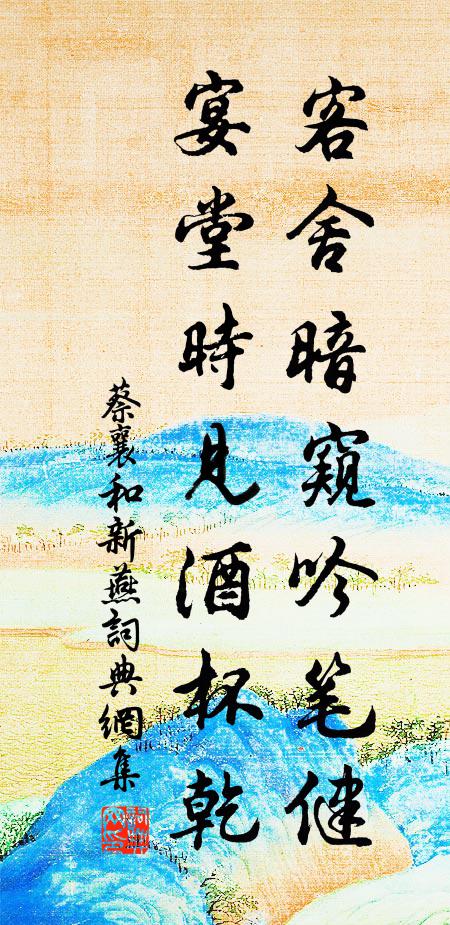 客舍暗窺吟笔健
宴堂時見酒杯乾
蔡襄和新燕詞典網集